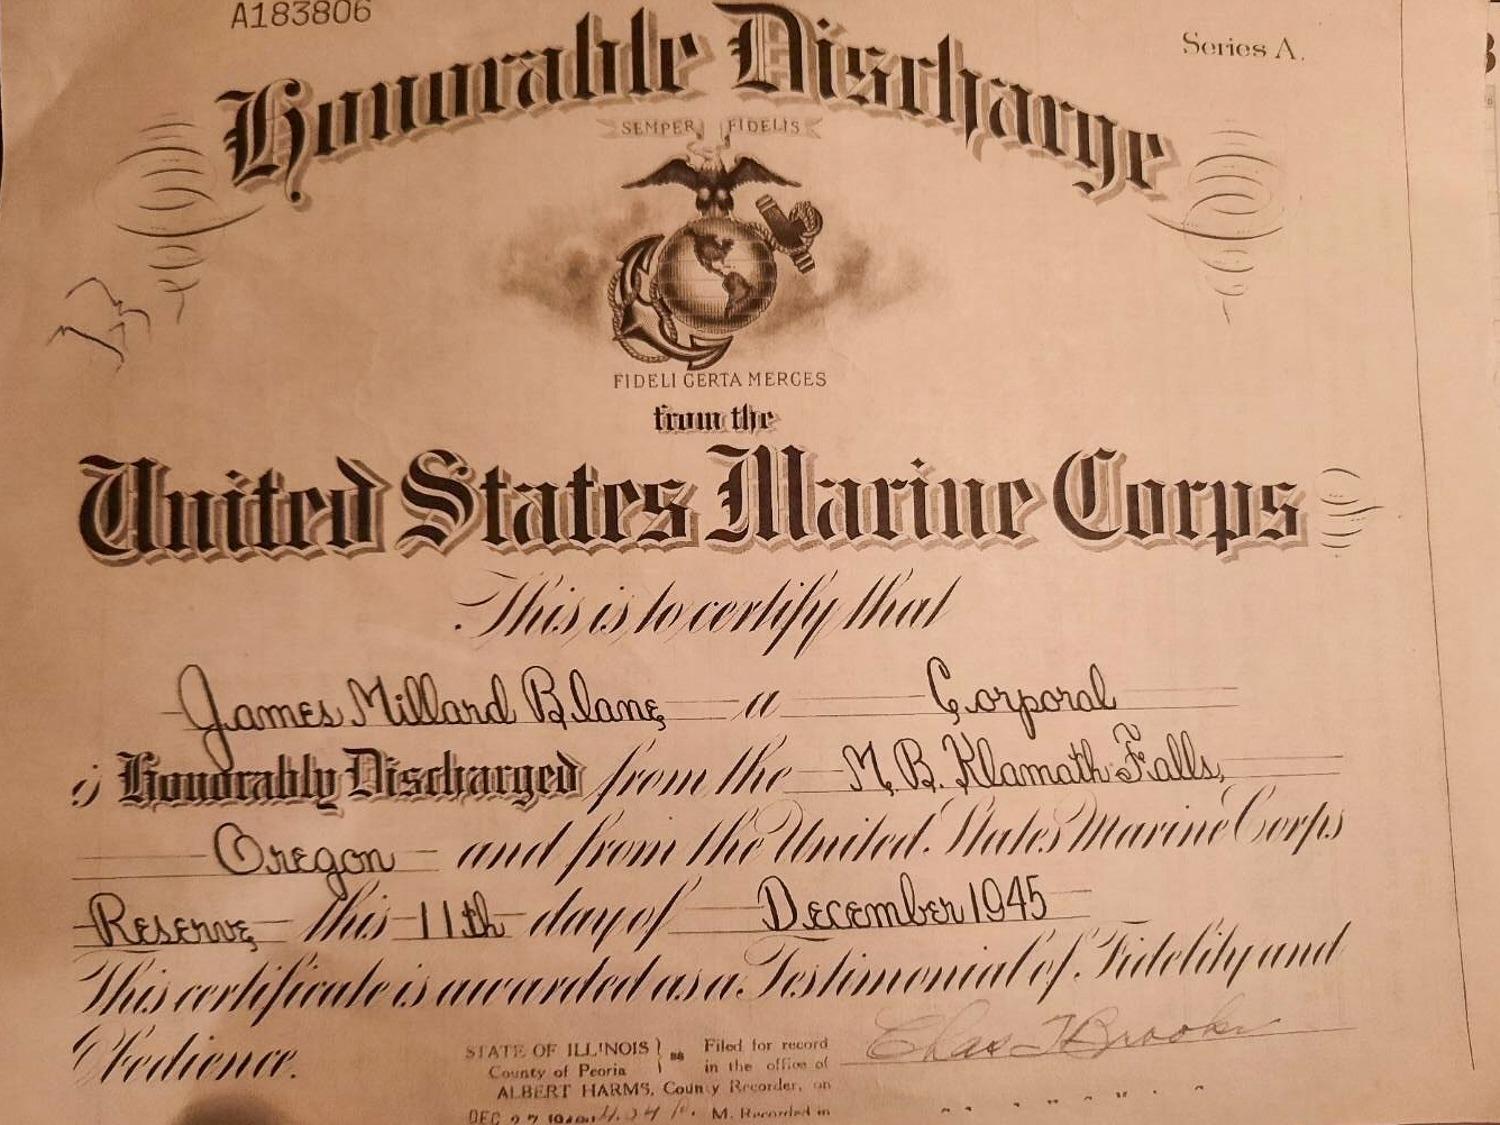 A183806
Series A.
Honorable Discharge
SEMPER FIDELIS
FIDELI CERTA MERCES
from the
United States Marine Corps
This is to certify that
James Millard Blane a Corporal
is Honorably Discharged from the M. B. Klamath Falls,
Oregon and from the United States Marine Corps
Reserve this 11th day of December 1945
This certificate is awarded as a Testimonial of Fidelity and
Obedience.
Chas T Brooks
STATE OF ILLINOIS } ss Filed for record
County of Peoria in the office of
ALBERT HARMS, County Recorder, on
DEC 27 M. Recorded in